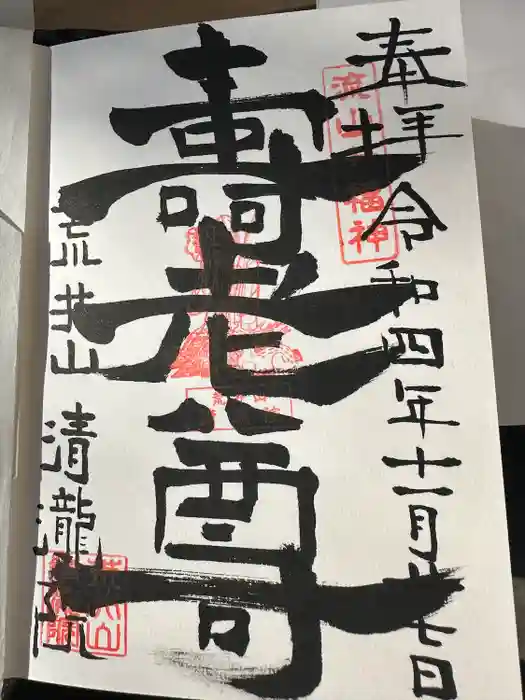 奉拝 令和四年十一月廿七日
流山七福神
壽老尊
荒井山 清瀧院